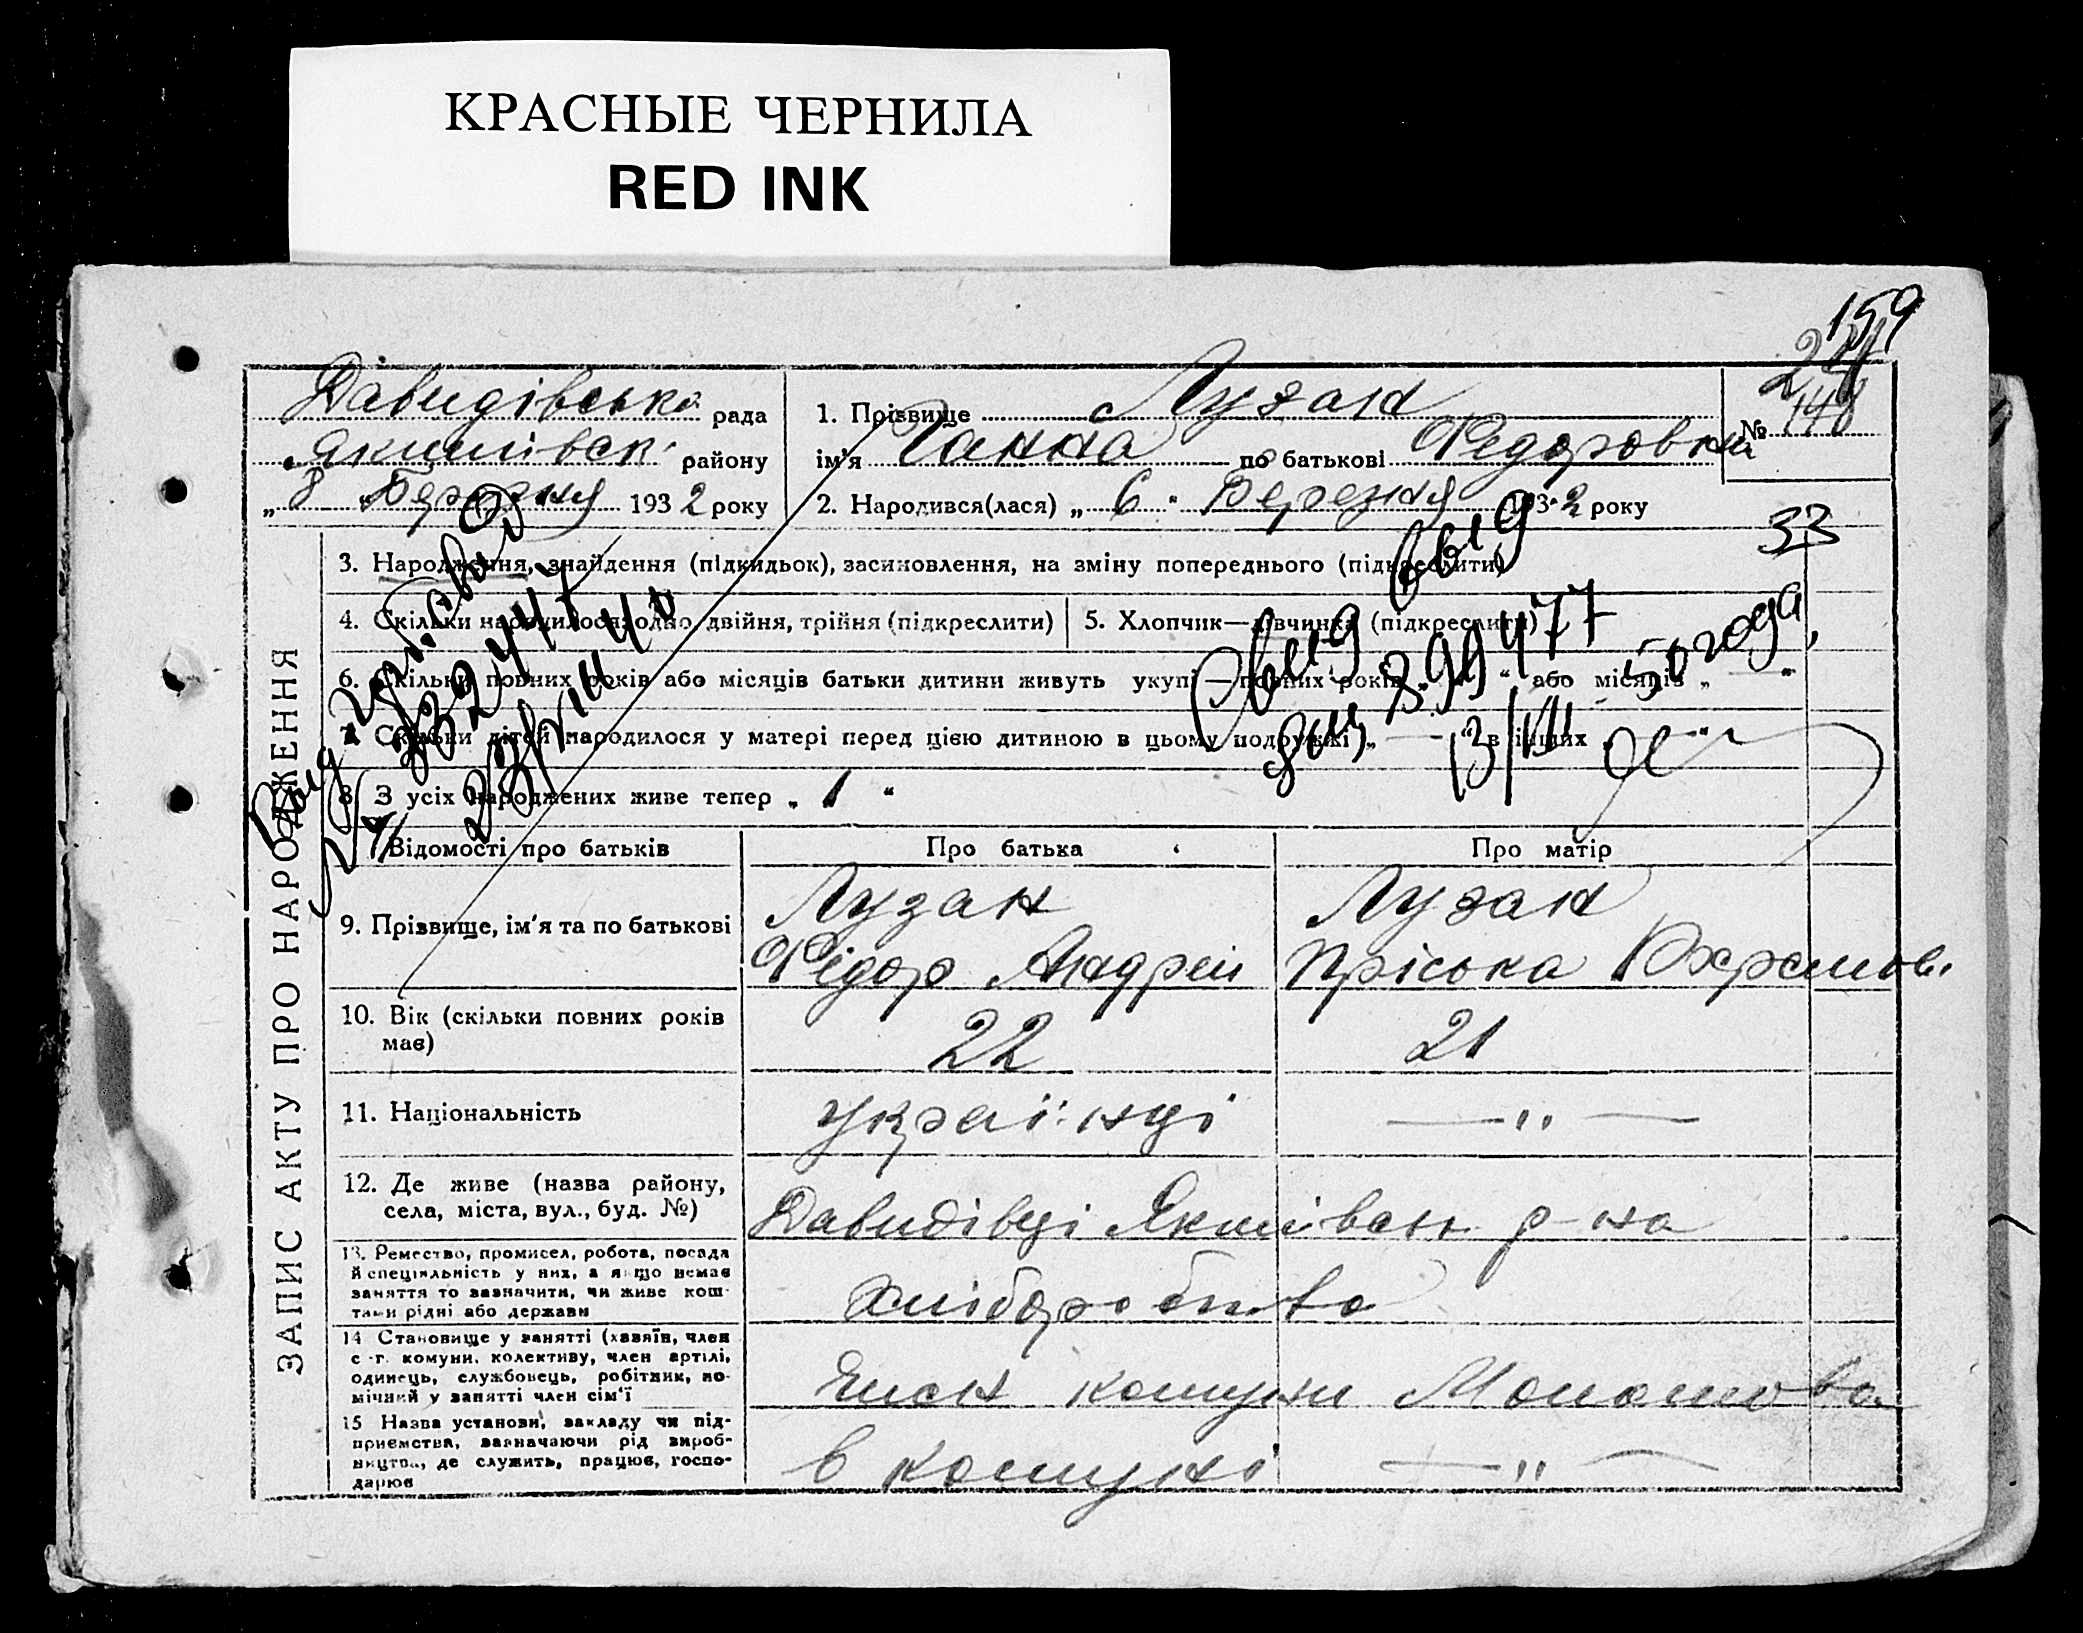 КРАСНЫЕ ЧЕРНИЛА
RED INK
159
148
Давидівська рада
Якимівськ. району
„ 8 “ Березня 1932 року
1. Прізвище Лузан
ім'я Ганна по батькові Федоровна
№
2. Народився(лася) „ 6 “ Березня 1932 року
33
ЗАПИС АКТУ ПРО НАРОДЖЕННЯ
3. Народження, знайдення (підкидьок), засиновлення, на зміну попереднього (підкреслити)
4. Скільки народилося: одно, двійня, трійня (підкреслити)
5. Хлопчик—дівчинка (підкреслити)
6. Скільки повних років або місяців батьки дитини живуть укупі — повних років „ “ або місяців „ — “
7. Скільки дітей народилося у матері перед цією дитиною в цьому подружжі „ — “ в інших „ — “
8. З усіх народжених живе тепер „ 1 “
23/VIII 40
Свид
выд
399477
13/VII 50 года
Відомості про батьків
Про батька
Про матір
9. Прізвище, ім'я та по батькові
Лузан
Федор Андрей
Лузан
Пріська Охрімов.
10. Вік (скільки повних років має)
22
21
11. Національність
українці
— " —
12. Де живе (назва району, села, міста, вул., буд. №)
Давидівці Якимівськ р-на
13. Ремество, промисел, робота, посада й спеціяльність у них, а якщо немає заняття то зазначити, чи живе коштами рідні або держави
Хліборобство
14 Становище у занятті (хазяїн, член с.-г. комуни, колективу, член артілі, одинець, службовець, робітник, помічний у занятті член сім'ї
Член комуни
15 Назва установи, закладу чи підприємства, зазначаючи рід виробництва, де служить, працює, господарює
в комуні
— " —